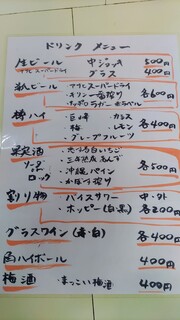 ドリンク メニュー
生ビール 中ジョッキ 500円
アサヒ スーパードライ グラス 400円
瓶ビール ・アサヒ スーパードライ
・キリン 一番搾り 各600円
・サッポロラガー 赤ラベル
酎ハイ ・巨峰 ・カシス
・梅 ・レモン 各400円
・グレープフルーツ
果実酒
ソーダ ・三年熟成あんず
水 ・沖縄パイン 各500円
ロック ・かぼす搾り
割り物 バイスサワー 中・外
ホッピー(白・黒) 各200円
グラスワイン(赤・白) 各400円
角ハイボール 400円
梅酒 ・まっこい梅酒 400円